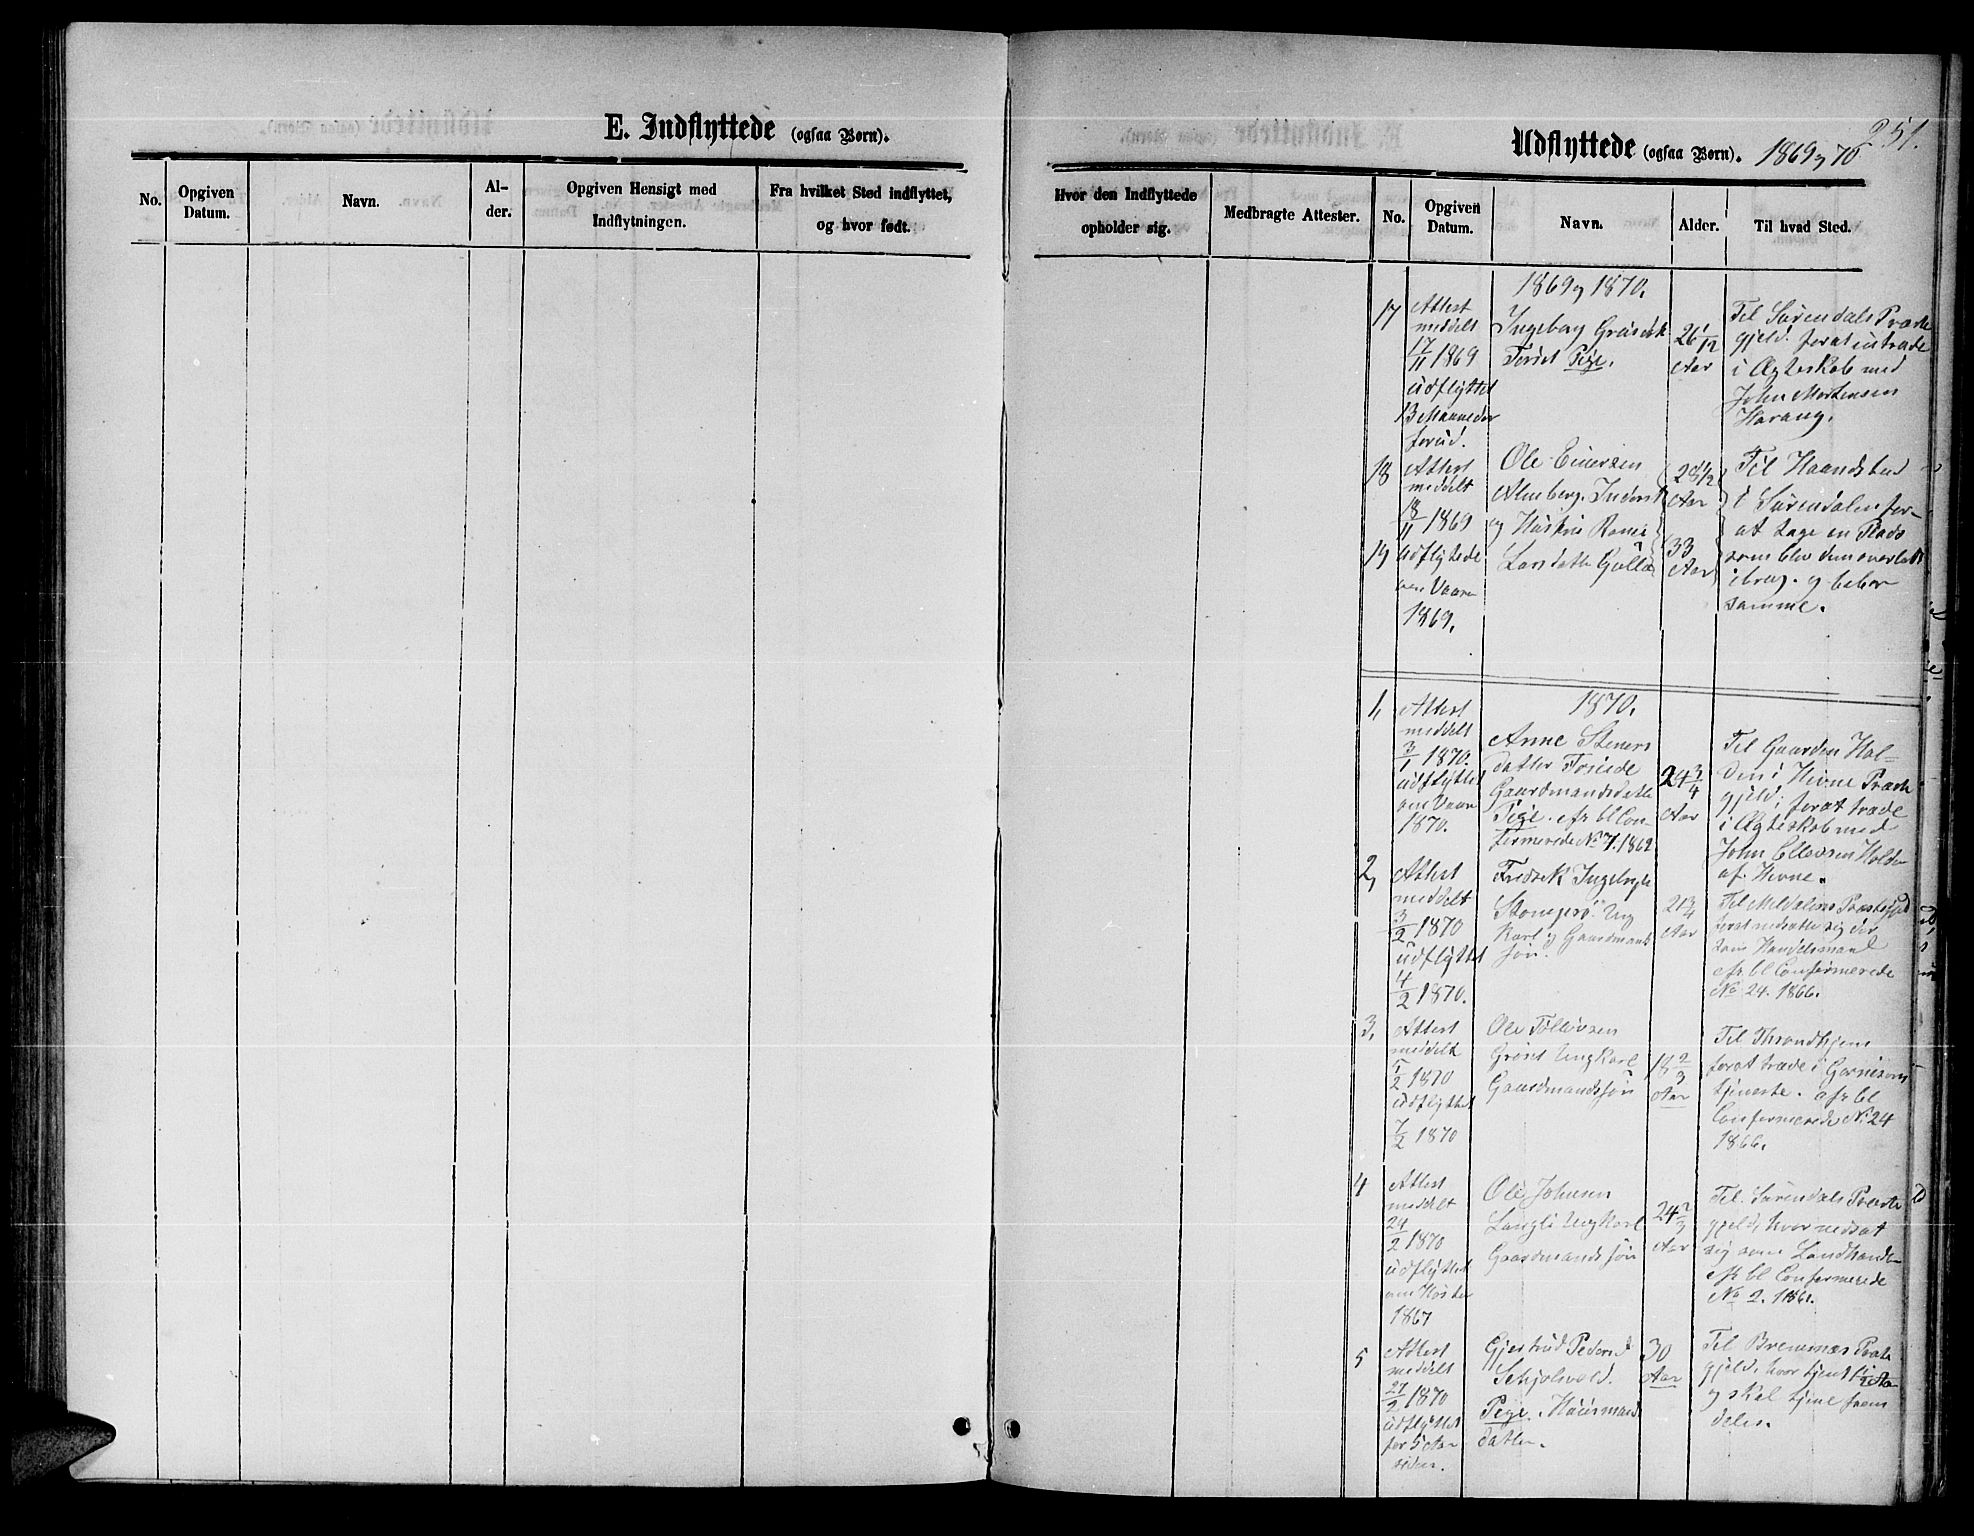 E. Indflyttede (ogsaa Børn).
No.
Opgiven
Datum.
Navn.
Al-
der.
Opgiven Hensigt med
Indflytningen.
Fra hvilket Sted indflyttet,
og hvor født.
251.
Udflyttede (ogsaa Børn). 1869 og 70
Hvor den Indflyttede
opholder sig.
Medbragte Attester.
No.
Opgiven
Datum.
Navn.
Alder.
Til hvad Sted.
1869 og 1870.
17
Attest
meddelt
17/11 1869
udflyttet
13 Maaneder
forud.
Ingeborg
Pige.
26 1/12
Aar
Til Surendals Præste
gjeld. for at intræde
i Ægteskab med
John Mortensen
Harang.
18
Attest
meddelt
18/11 1869
19
udflytede
om Vaaren
1869.
Ole Einersen
Almberg. Inderst
og Hustru
Larsdatter
28 1/2
Aar
33
Aar
Til Haandstad
i Surendalen for
at tage en Plads
som blev dem overladt
i brug. og beboer
samme.
1870.
1,
Attest
meddelt
3/1 1870.
udflyttet
om Vaar
1870.
Anne Steners
datter
Gaardmandsdatter
Pige. cfr bl Con-
firmerede No 7. 1862
24 3/4
Aar
Til Gaarden Hol-
den i Hevne Præste
gjeld, for at træde
i Ægteskab med
John Ellevsen Holde
af Hevne.
2,
Attest
meddelt
3/2 1870
udflyttet
4/2 1870.
Fredrik
Ung
Karl og Gaardmands
søn.
21 3/4
Aar
Til Meldalens Præstegjeld
for at nedsætte sig der
som Handelsmand
cfr bl Confirmerede
No 24. 1866.
3,
Attest
meddelt
5/2 1870
udflyttet
7/2 1870
Ole Tollevsen
Grøset Ungkarl
Gaardmandssøn
18 2/3
Aar
Til Throndhjem
for at træde i Garnisons
tjeneste. cfr bl
Confirmerede No 24
1866.
4
Attest
meddelt
24/2 1870
udflyttet
om Høsten
1867
Ole Johnsen
Langli Ungkarl
Gaardmandssøn
24 2/3
Aar
Til Surendals Præste
gjeld, hvor nedsat
sig som Landhandler
cfr bl Confirmerede
No 2. 1861.
5
Attest
meddelt
27/2 1870
udflyttet
for 5 Aar
siden.
Gjertrud Pedersd
Schjølvold.
Pige. Huusmands
datter.
30
Aar
Til Bremsnæs Præste
gjeld, hvor tjent
og skal tjene frem
deles.